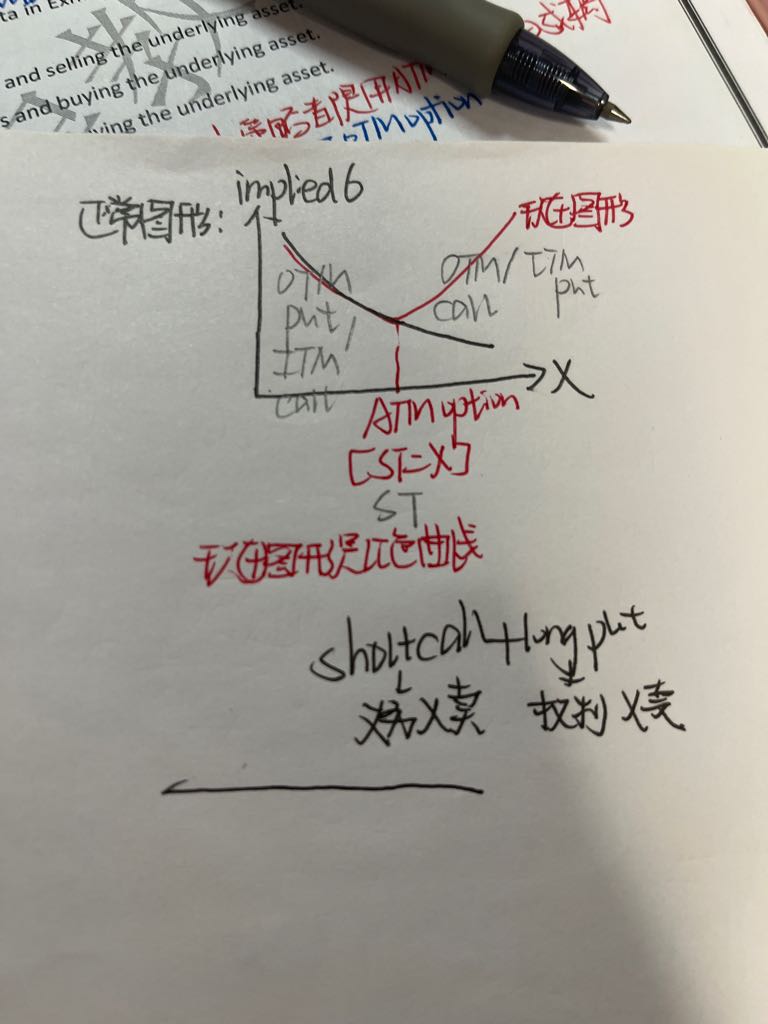 ta in Exh
and selling the underlying asset.
s and buying the underlying asset.
ying the underlying asset.
策略者误用ATM
OTM option
正常图形:
implied б
现在图形
OTM
put/
ITM
call
OTM/ITM
call put
X
ATM option
[ST=X]
ST
现在图形是红色曲线
short call + long put
义务X卖 权利X卖